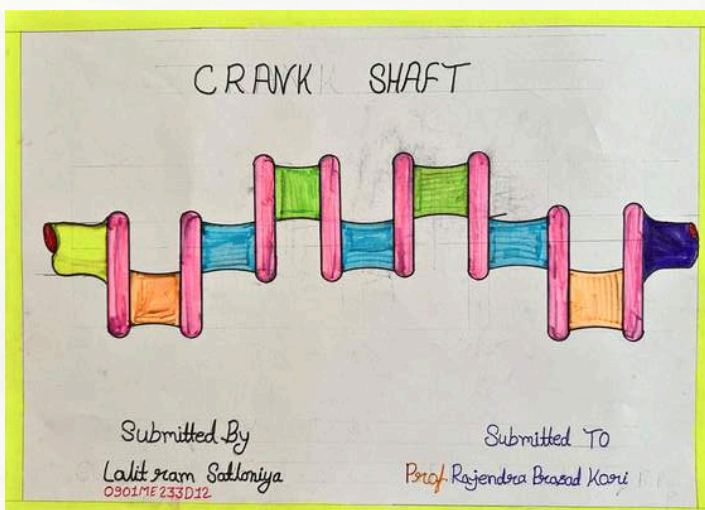 CRANK SHAFT
Submitted By
Lalit ram Satloniya
0901ME233D12
Submitted To
Prof Rajendra Brasad Kori